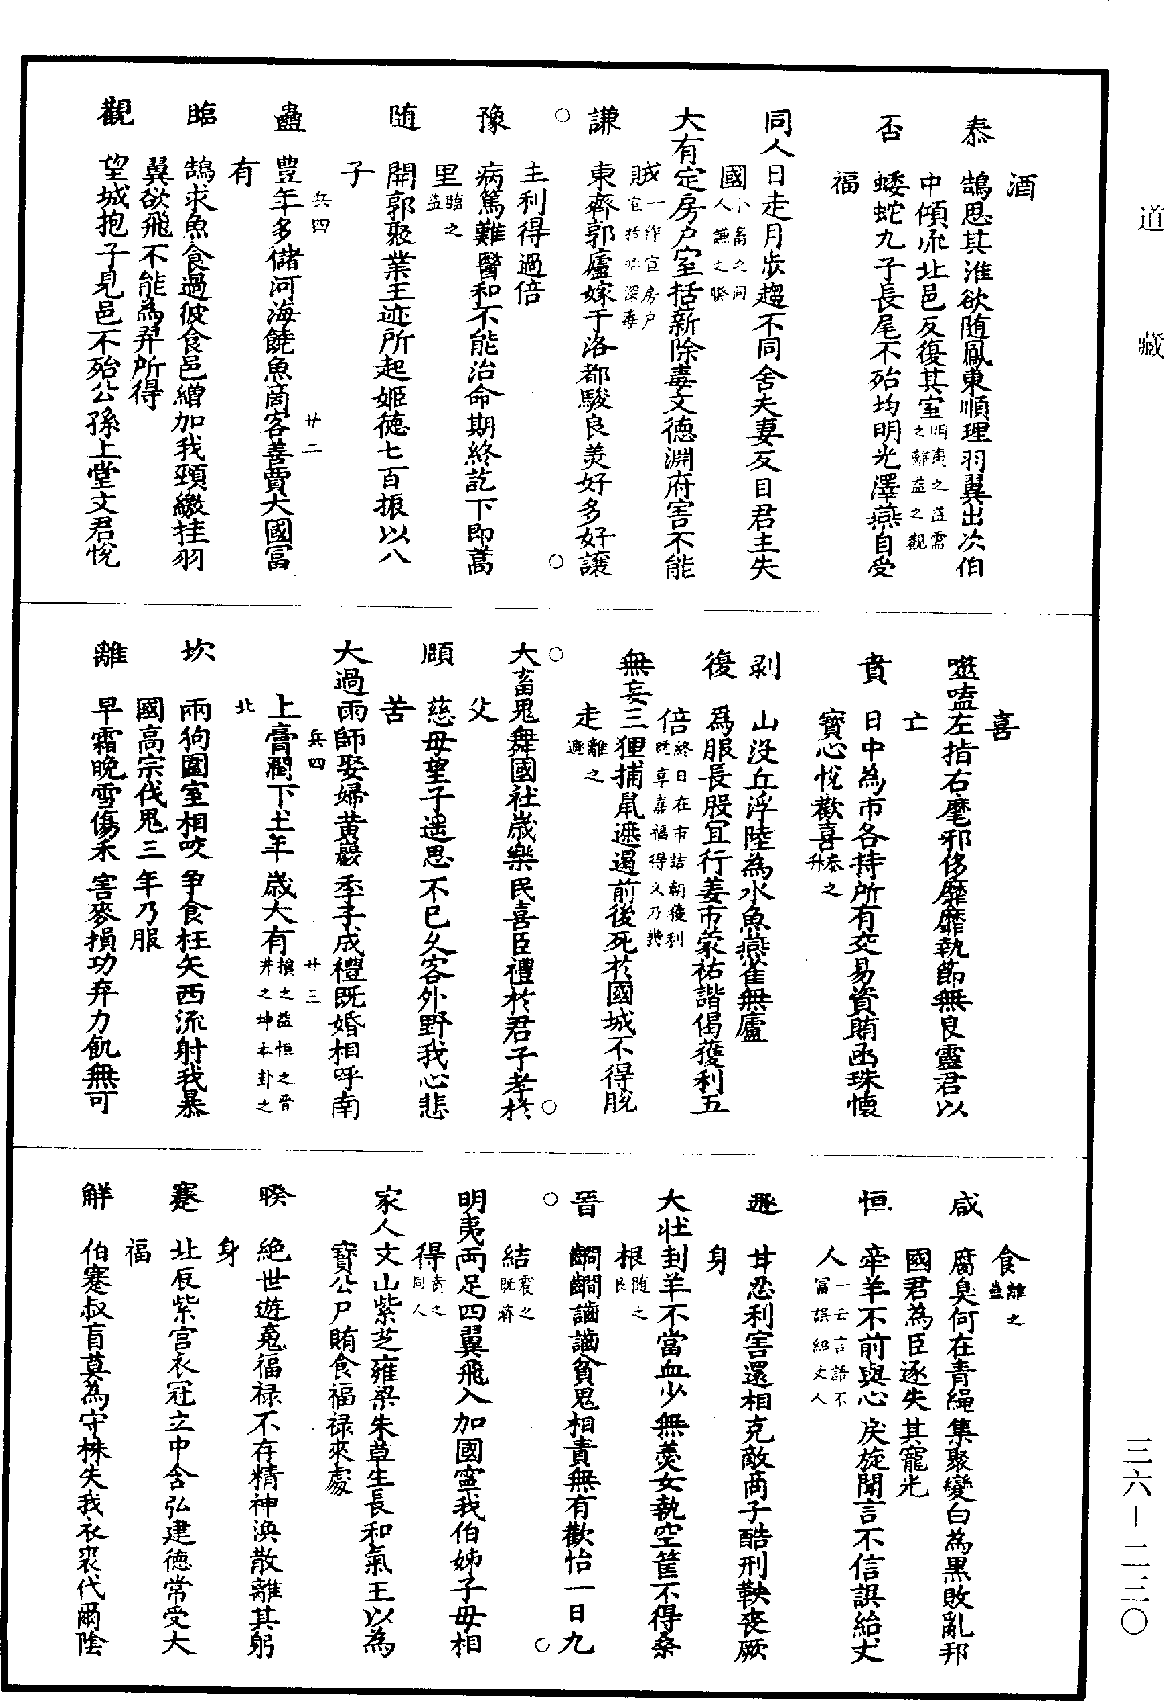 酒
泰　鵠思其淮欲随鳳東順理羽翼出次伯
中傾䘏北邑反復其室明夷之益需之離益之觀
否　蜲蛇九子長尾不殆均明光澤燕自受
福
同人日走月步趨不同舍夫妻反目君主失
國小畜之同人謙之睽
大有定房户室括新除毒文德淵府害不能
賊一作宜房户宜括除深毒
謙　東齊郭廬嫁于洛都駿良美好多好讓
主利得過倍
豫　病篤難醫和不能治命期終訖下即蒿
里臨之益
随　開郭裂業王迹所起姬德七百振以八
子
兵四　廿二
蠱　豐年多儲河海饒魚商客善賈大國富
有
臨　鵠求魚食過彼食邑繒加我頸繳挂羽
翼欲飛不能為羿所得
觀　望城抱子見邑不殆公孫上堂文君悅
喜
噬嗑左指右麾邪侈靡靡執節無良靈君以
亡
賁　日中為市各持所有交易資賄函珠懷
寶心悅歡喜泰之升
剥　山沒丘浮陸為水魚燕雀無廬
復　為服長股宜行姜市蒙祐諧偈獲利五
倍終日在市詰朝獲利既享嘉福得義乃貴
無妄三狸捕鼠遮遏前後死於國城不得脫
走離之遯
大畜鬼舞國社歲樂民喜臣禮於君子孝於
父
頤　慈母望子遥思不已久客外野我心悲
苦
大過雨師娶婦黄巖季子成禮既婚相呼南
兵四　廿三
上膏潤下土年歲大有損之益恒之晉井之坤本卦之
北
坎　兩狗圖室相咬争食枉矢西流射我暴
國高宗伐鬼三年乃服
離　早霜晚雪傷禾害麥損功弃力飢無可
食離之蠱
咸　腐臭何在青繩集聚變白為黑敗亂邦
國君為臣逐失其寵光
恒　牽羊不前與心戾旋聞言不信誤紿丈
人一云言語不當誤紿丈人
遯　甘忍利害還相克敵商子酷刑鞅喪厥
身
大壯刲羊不當血少無羹女執空筐不得桑
根随之艮
晉　䶧䶧齰齰貧鬼相責無有歡怡一日九
結震之既濟
明夷兩足四翼飛入加國寧我伯姊子母相
得賁之同人
家人文山紫芝雍梁朱草生長和氣王以為
寶公尸賄食福禄來處
睽　絶世遊䰟福禄不存精神渙散離其躬
身
蹇　北辰紫宫衣冠立中含弘建德常受大
福
解　伯蹇叔盲莫為守株失我衣裘代爾陰
道藏
三六－二三〇